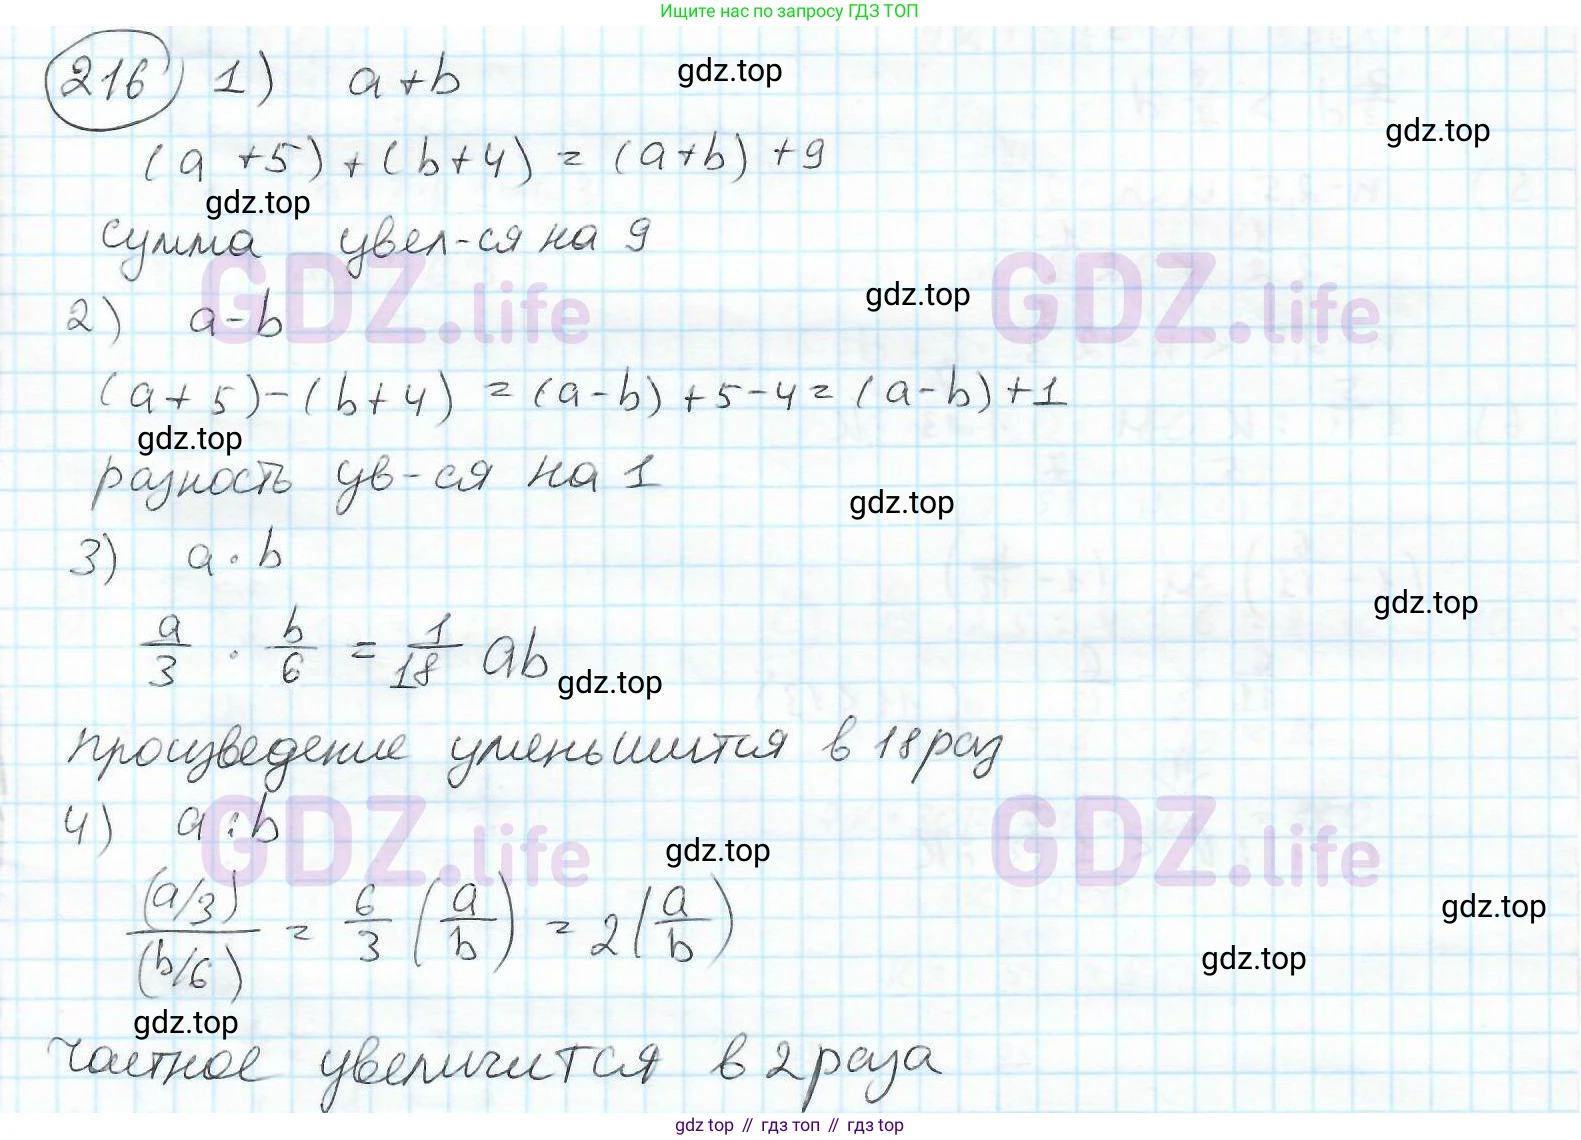 Ищите нас по запросу ГДЗ ТОП
216 1) a+b
gdz.top
gdz.top
(a +5)+(b+4) = (a+b) +9
gdz.top
сумма увел-ся на 9
GDZ.life
GDZ.life
gdz.top
2) a-b
(a+5)-(b+4) = (a-b)+5-4= (a-b)+1
gdz.top
разность ув-ся на 1
gdz.top
3) a·b
gdz.top
a/3 · b/6 = 1/18 ab
gdz.top
произведение уменьшится в 18 раз
4) a:b
GDZ.life
GDZ.life
gdz.top
(a/3)/(b/6) = 6/3 (a/b) = 2(a/b)
gdz.top
gdz.top
gdz.top
частное увеличится в 2 раза
gdz top // гдз топ // gdz top